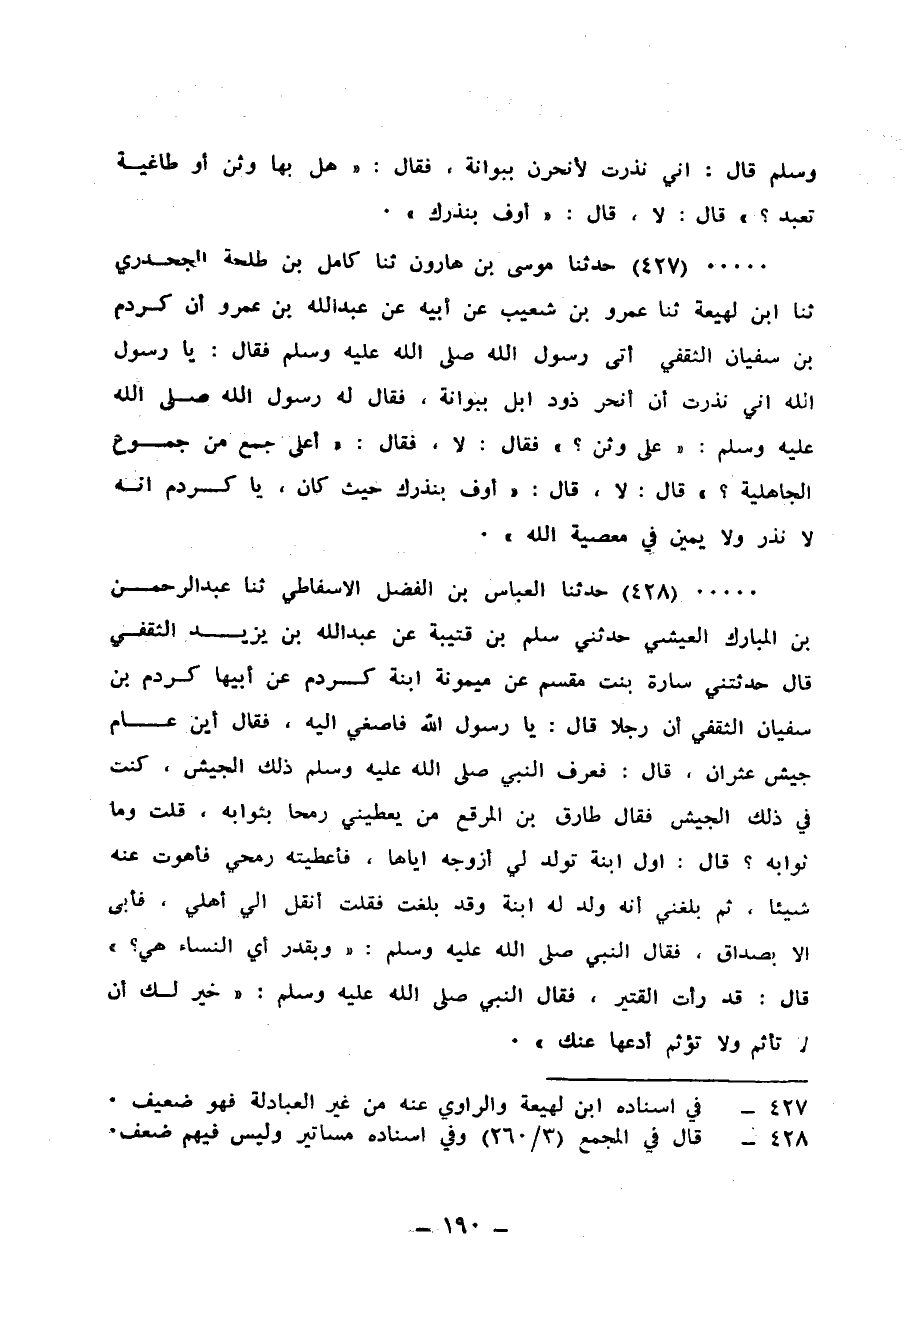 وسلم قال : اني نذرت لأنحرن ببوانة ، فقال : « هل بها وثن أو طاغيـة
تعبد ؟ » قال : لا ، قال : « أوف بنذرك » ٠
٠٠٠٠٠ (٤٢٧) حدثنا موسى بن هارون ثنا كامل بن طلحة الجحـدري
ثنا ابن لهيعة ثنا عمرو بن شعيب عن أبيه عن عبدالله بن عمرو أن كـردم
بن سفيان الثقفي أتى رسول الله صلى الله عليه وسلم فقال : يا رسول
الله اني نذرت أن أنحر ذود ابل ببوانة ، فقال له رسول الله صـلى الله
عليه وسلم : « على وثن ؟ » فقال : لا ، فقال : « أعلى جمع من جمـوع
الجاهلية ؟ » قال : لا ، قال : « أوف بنذرك حيث كان ، يا كـردم انـه
لا نذر ولا يمين في معصية الله » ٠
٠٠٠٠٠ (٤٢٨) حدثنا العباس بن الفضل الاسفاطي ثنا عبدالرحمـن
بن المبارك العيشي حدثني سلم بن قتيبة عن عبدالله بن يزيـد الثقفـي
قال حدثتني سارة بنت مقسم عن ميمونة ابنة كـردم عن أبيها كردم بن
سفيان الثقفي أن رجلا قال : يا رسول الله فاصغي اليه ، فقال أين عـام
جيش عثران ، قال : فعرف النبي صلى الله عليه وسلم ذلك الجيش ، كنت
في ذلك الجيش فقال طارق بن المرقع من يعطيني رمحا بثوابه ، قلت وما
ثوابه ؟ قال : اول ابنة تولد لي أزوجه اياها ، فأعطيته رمحي فأهوت عنه
شيئا ، ثم بلغني أنه ولد له ابنة وقد بلغت فقلت أنقل الي أهلي ، فأبى
الا بصداق ، فقال النبي صلى الله عليه وسلم : « وبقدر أي النساء هي؟ »
قال : قد رأت القتير ، فقال النبي صلى الله عليه وسلم : « خير لـك أن
لا تأثم ولا تؤثم أدعها عنك » ٠
٤٢٧ ـ في اسناده ابن لهيعة والراوي عنه من غير العبادلة فهو ضعيف ٠
٤٢٨ ـ قال في المجمع (٢٦٠/٣) وفي اسناده مساتير وليس فيهم ضعف٠
ـ ١٩٠ ـ